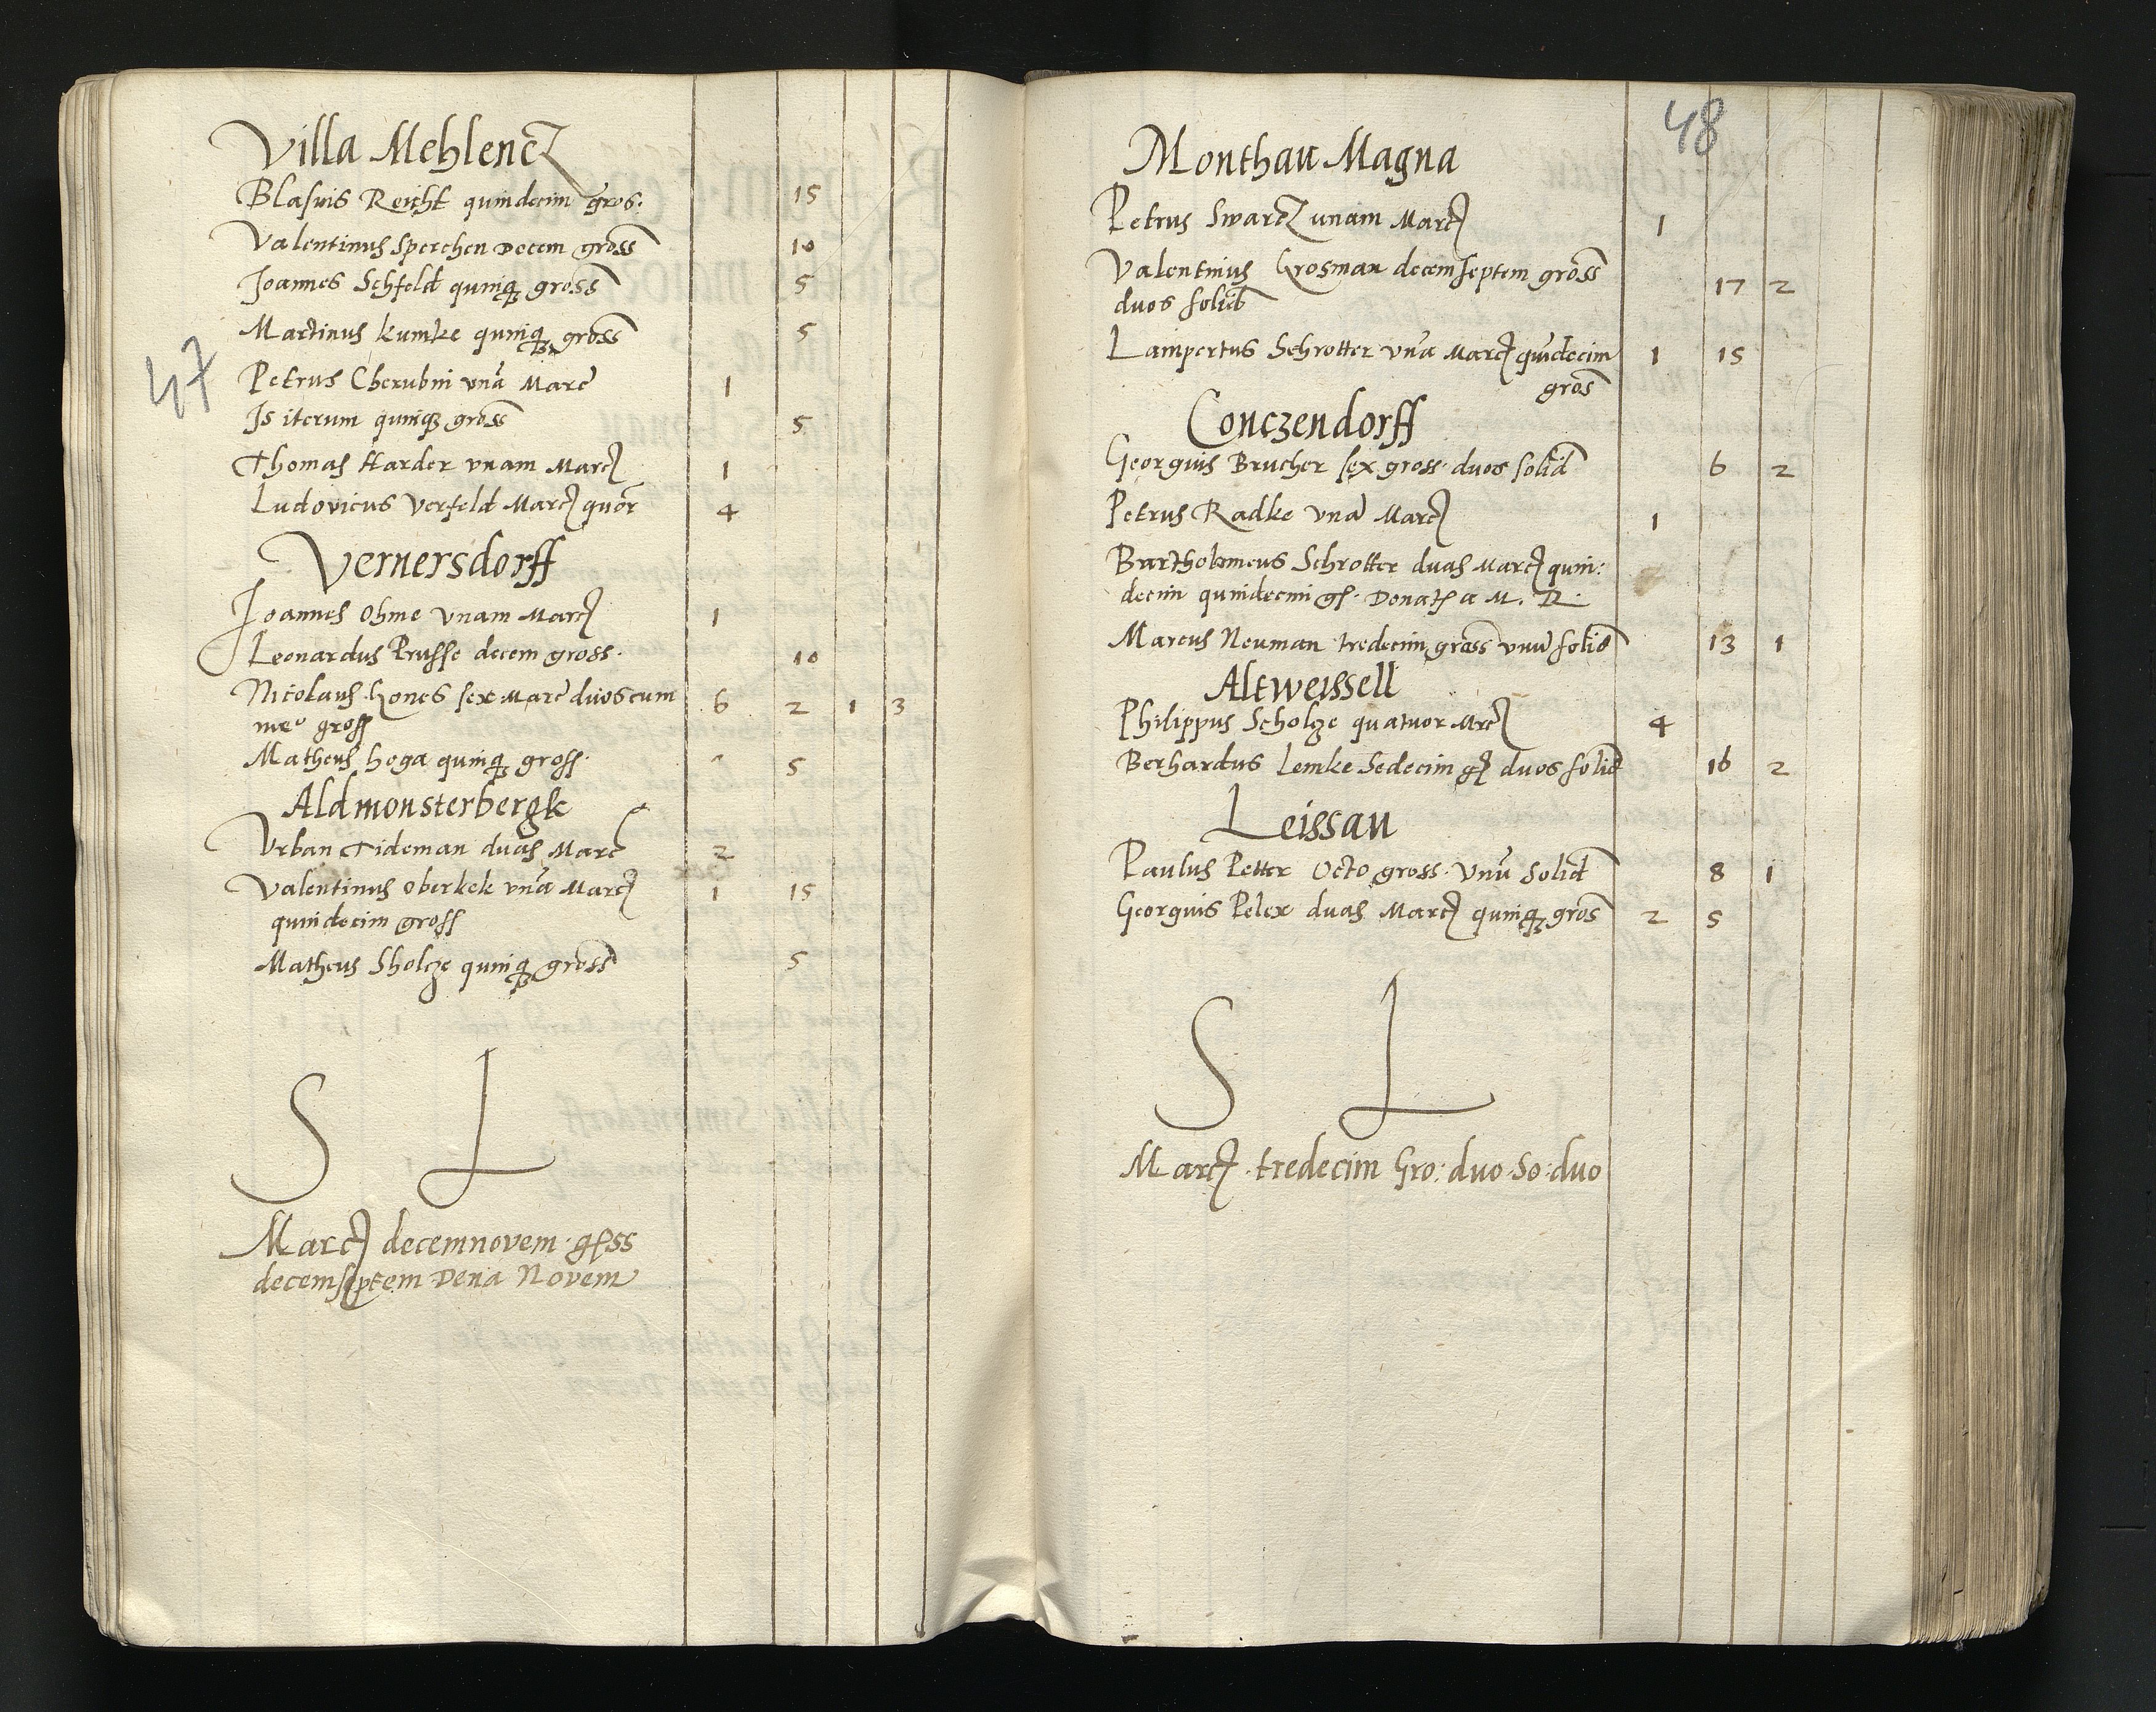 Villa Mehlencz
Blasius Reicht quindecim gros: 15
Valentinus Sperchen Decem gross 10
Joannes Schfeld quinqz gross 5
Martinus Kumke quinqz gross 5
47
Petrus Cherubin vna Marc 1
Is iterum quinqz gross 5
Thomas Harder vnam Marcz 1
Ludovicus Verfeld Marcz quor 4
Vernersdorff
Joannes Ohme vnam Marcz 1
Leonardus Prusse decem gross. 10
Nicolaus Hones sex Marc duos cum 6 2 1 3
gross
Matheus hoga quinqz gross. 5
Aldmonsterbergk
Vrban Tideman duas Marc 2
Valentinus Oberkek vna Marcz 1 15
quindecim gross
Matheus Sholcze quinqz gross 5
S L
Marcz decemnovem grss
decemseptem Dena Novem
48
Monthau Magna
Petrus Swarcz unam Marcz 1
Valentinus Grosman decemseptem gross 17 2
duos solid
Lampertus Schrotter vna Marcz quidecim 1 15
gros
Conczendorff
Georgius Brucher sex gross. duos solid 6 2
Petrus Radke vna Marcz 1
Bartholomeus Schrotter duas Marcz quin:
decim quindecim gs. Donatz a M. R.
Marcus Neuman tredecim gross vnu solid 13 1
Altweissell
Philippus Scholcze quatuor Mrcz 4
Berhardus Lemke Sedecim gz duos solid 16 2
Leissau
Paulus Petter Octo gross. Vnu Solid 8 1
Georgius Pelex duas Marcz quinqz gros 2 5
S L
Marcz. tredecim Gro: duo So: duo